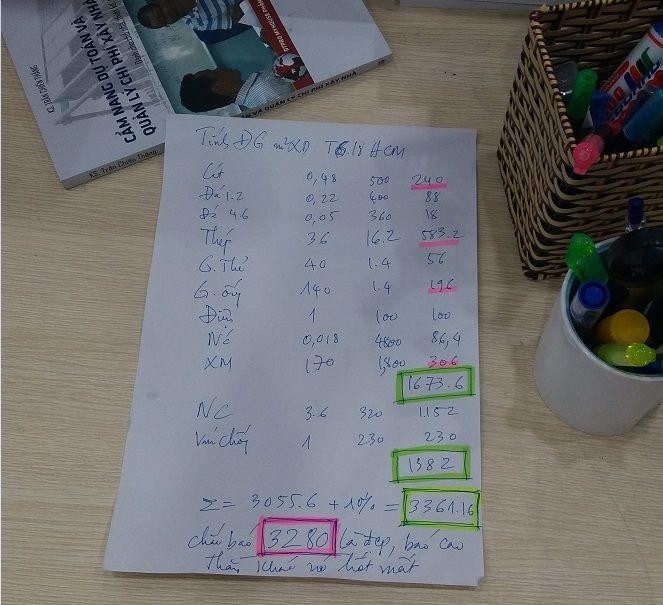 KS. TRẦN CHIẾN THẮNG
CẨM NANG DỰ TOÁN VÀ
QUẢN LÝ CHI PHÍ XÂY NHÀ
KS. Trần Chiến Thắng
ÁN VÀ QUẢN LÝ CHI PHÍ XÂY NHÀ
Tính ĐG m² XD T6.18 HCM
Cát 0,48 500 240
Đá 1.2 0,22 400 88
Đá 4.6 0,05 360 18
Thép 36 16.2 583.2
G. Thẻ 40 1.4 56
G. ống 140 1.4 196
Đinh 1 100 100
0,018 4800 86,4
XM 170 1,800 306
1673.6
NC 3.6 320 1.152
1 230 230
1382
Σ = 3055.6 + 10% = 3361.16
bao 3280 là đẹp, báo cao
nó